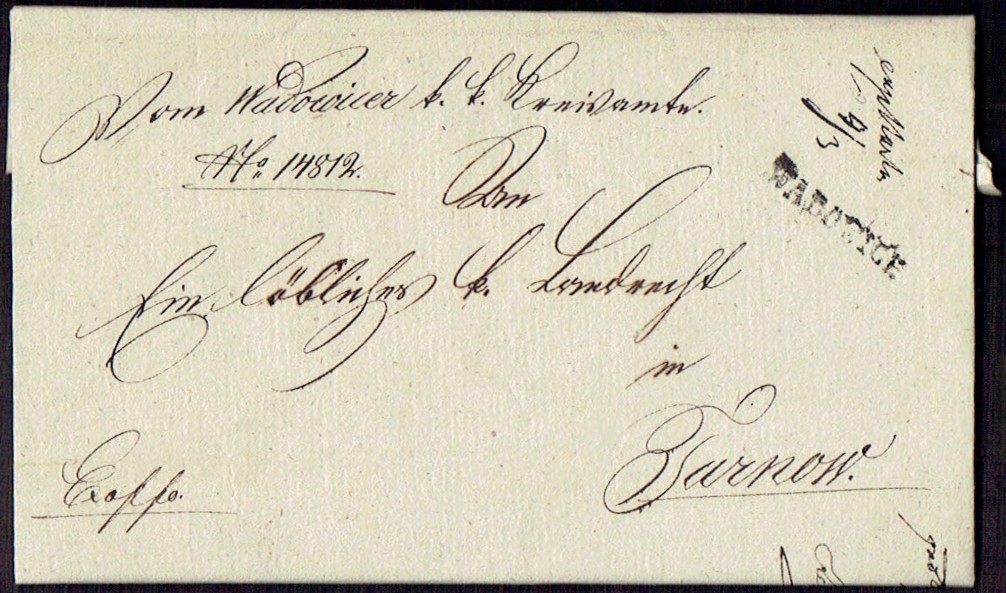 Vom Wadowicer k. k. Kreisamte.
No. 14812.
An
Ein löbliches k. Landrecht
in
Tarnow.
WADOWICE